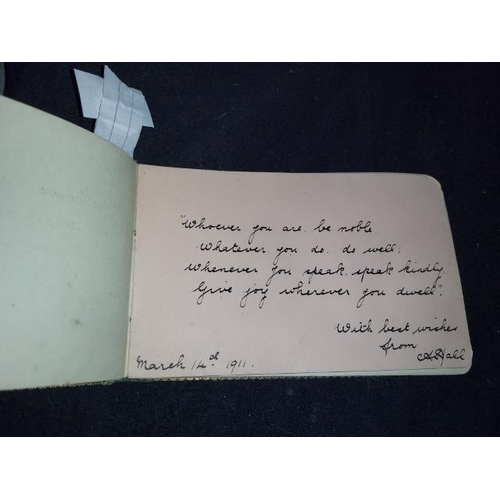 "Whoever you are, be noble
Whatever you do, do well,
Whenever you speak, speak kindly,
Give joy wherever you dwell".
With best wishes
from
A Hall
March 14th 1911.